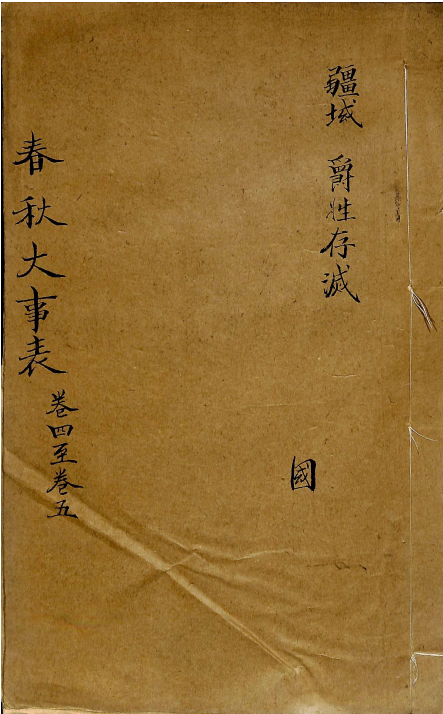 疆域 爵姓存滅
國
春秋大事表
卷四至卷五